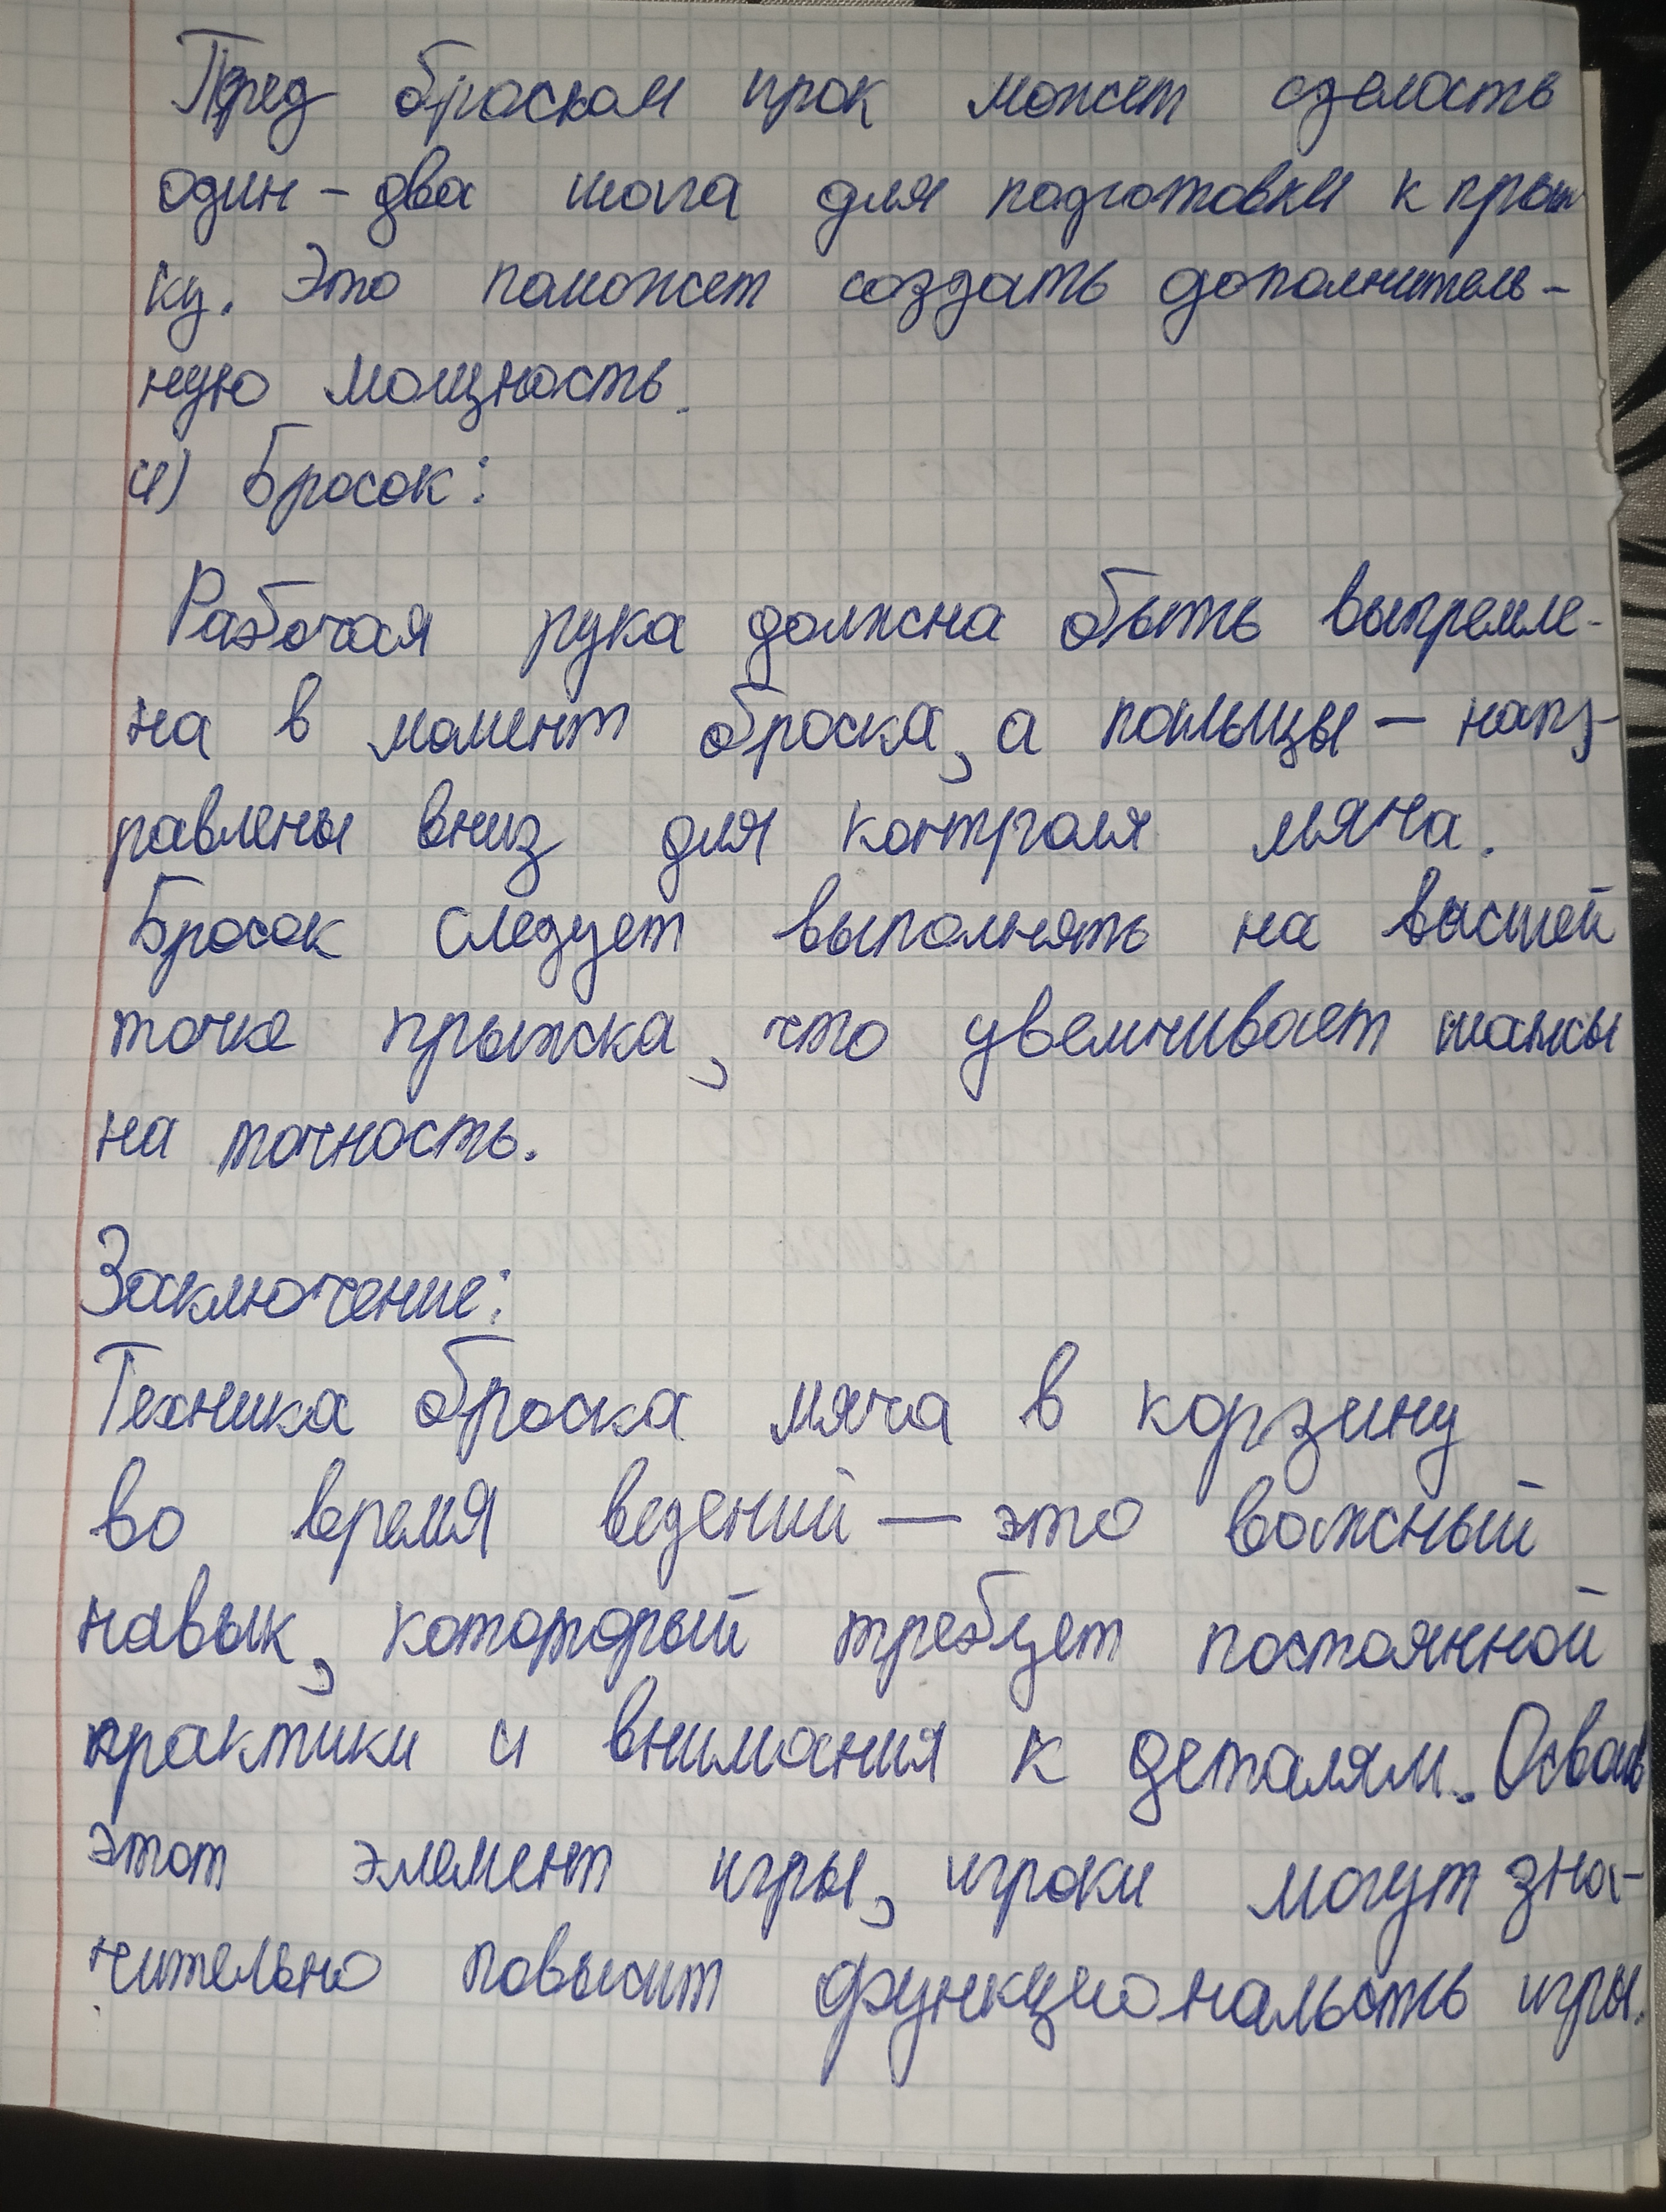 Пред броском ирок может сделость
один-два шага для подготовки к прыж
ку. Это поможет создать дополнитель-
ную мощность.
4) Бросок:
Рабочая рука должна быть выпремле-
на в момент броска, а пальцы — нап-
равлены вниз для контроля мяча.
Бросок следует выполнять на высшей
точке прыжка, что увеличивает шансы
на точность.
Заключение:
Техника броска мяча в корзину
во время ведений — это важный
навык, кототорый требует постоянной
практики и внимания к деталям.
этот элемент игры, игроки могут зна-
чительно повысит функциональость игры.